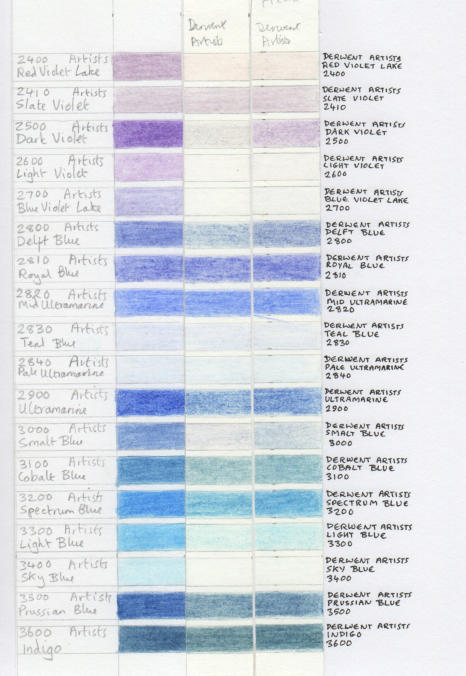 Derwent
Artists
Derwent
Artists
2400 Artists
Red Violet Lake
DERWENT ARTISTS
RED VIOLET LAKE
2400
2410 Artists
Slate Violet
DERWENT ARTISTS
SLATE VIOLET
2410
2500 Artists
Dark Violet
DERWENT ARTISTS
DARK VIOLET
2500
2600 Artists
Light Violet
DERWENT ARTISTS
LIGHT VIOLET
2600
2700 Artists
Blue Violet Lake
DERWENT ARTISTS
BLUE VIOLET LAKE
2700
2800 Artists
Delft Blue
DERWENT ARTISTS
DELFT BLUE
2800
2810 Artists
Royal Blue
DERWENT ARTISTS
ROYAL BLUE
2810
2820 Artists
Mid Ultramarine
DERWENT ARTISTS
MID ULTRAMARINE
2820
2830 Artists
Teal Blue
DERWENT ARTISTS
TEAL BLUE
2830
2840 Artists
Pale Ultramarine
DERWENT ARTISTS
PALE ULTRAMARINE
2840
2900 Artists
Ultramarine
DERWENT ARTISTS
ULTRAMARINE
2900
3000 Artists
Smalt Blue
DERWENT ARTISTS
SMALT BLUE
3000
3100 Artists
Cobalt Blue
DERWENT ARTISTS
COBALT BLUE
3100
3200 Artists
Spectrum Blue
DERWENT ARTISTS
SPECTRUM BLUE
3200
3300 Artists
Light Blue
DERWENT ARTISTS
LIGHT BLUE
3300
3400 Artists
Sky Blue
DERWENT ARTISTS
SKY BLUE
3400
3500 Artists
Prussian Blue
DERWENT ARTISTS
PRUSSIAN BLUE
3500
3600 Artists
Indigo
DERWENT ARTISTS
INDIGO
3600